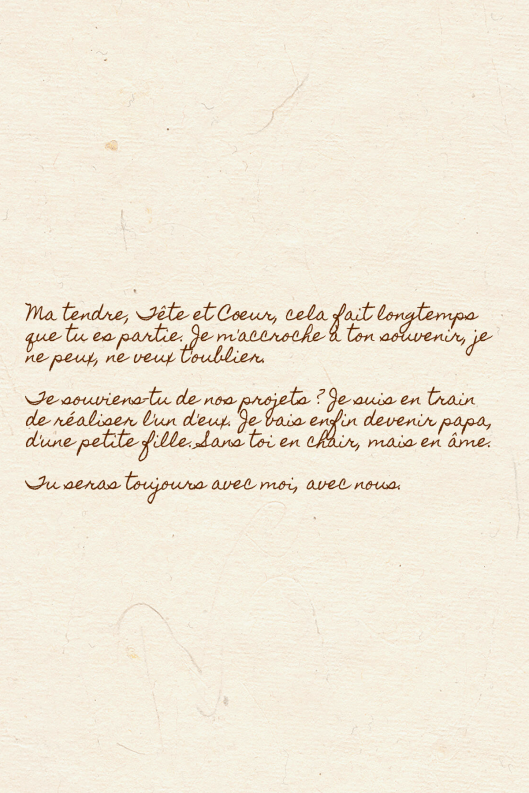 Ma tendre, Tête et Coeur, cela fait longtemps
que tu es partie. Je m'accroche à ton souvenir, je
ne peux, ne veux t'oublier.
Te souviens-tu de nos projets ? Je suis en train
de réaliser l'un d'eux. Je vais enfin devenir papa,
d'une petite fille. Sans toi en chair, mais en âme.
Tu seras toujours avec moi, avec nous.